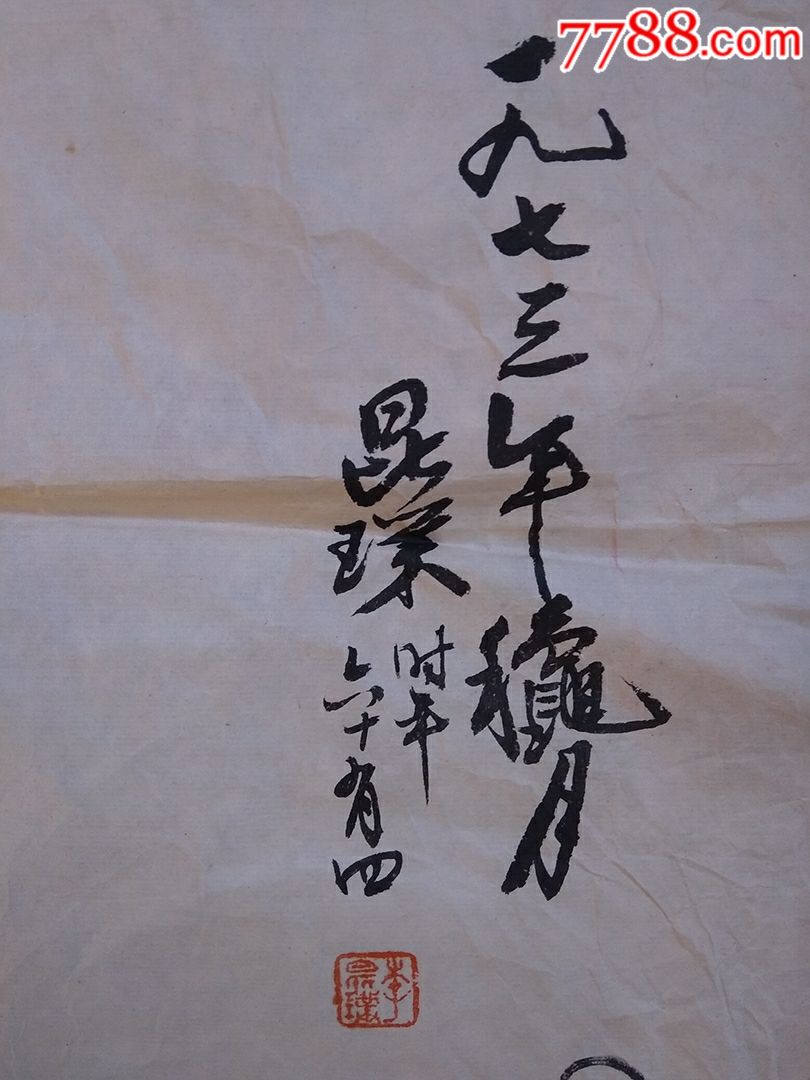 7788.com
一九七三年龝月
昆璞
时年
六十有四
李昆璞